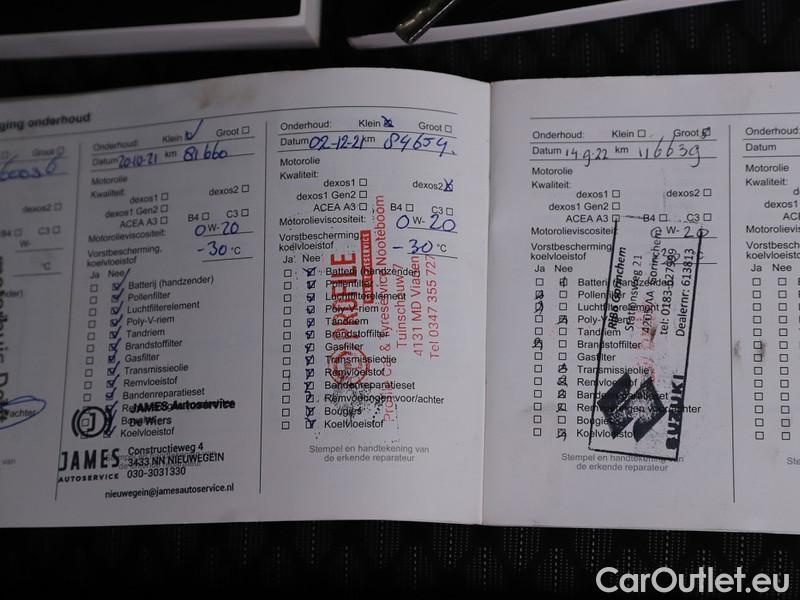 ging onderhoud
Groot
dexos2
B4 C3
W-
°C
achter
van
Onderhoud: Klein Groot
Datum 20-10-21 km 81660
Motorolie
Kwaliteit:
dexos1 dexos2
dexos1 Gen2
ACEA A3 B4 C3
Motorolieviscositeit: 0 W- 20
Vorstbescherming,
koelvloeistof -30 °C
Ja Nee
Batterij (handzender)
Pollenfilter
Luchtfilterelement
Poly-V-riem
Tandriem
Brandstoffilter
Gasfilter
Transmissieolie
Remvloeistof
Bandenreparatieset
Koelvloeistof
JAMES Autoservice
De Wiers
Constructieweg 4
3433 NN NIEUWEGEIN
030-3031330
JAMES
AUTOSERVICE
nieuwegein@jamesautoservice.nl
Onderhoud: Klein Groot
Datum 02-12-21 km 84654.
Motorolie
Kwaliteit:
dexos1 dexos2
dexos1 Gen2
ACEA A3 B4 C3
Motorolieviscositeit: 0 W- 20
Vorstbescherming,
koelvloeistof -30 °C
Ja Nee
Batterij (handzender)
Pollenfilter
Luchtfilterelement
Poly-V-riem
Tandriem
Brandstoffilter
Gasfilter
Transmissieolie
Remvloeistof
Bandenreparatieset
Remvoeringen voor/achter
Bougies
Koelvloeistof
PROFILE
Tyreservice Nooteboom
Tuinschouw 7
4131 MD Vianen
Tel 0347 355 727
Stempel en handtekening van
de erkende reparateur
Onderhoud: Klein Groot
Datum 14-9-22 km 116639
Motorolie
Kwaliteit:
dexos1 dexos2
dexos1 Gen2
ACEA A3 B4 C3
Motorolieviscositeit: 0 W- 20
Vorstbescherming,
koelvloeistof °C
Ja Nee
Batterij (handzender)
Pollenfilter
Luchtfilterelement
Poly-V-riem
Tandriem
Brandstoffilter
Gasfilter
Transmissieolie
Remvloeistof
Bandenreparatieset
Remvoeringen voor/achter
Bougies
Koelvloeistof
Gorinchem
Stationsweg 21
Dealernr: 613813
SUZUKI
Stempel en handtekening van
de erkende reparateur
Onderhoud:
Datum
Motorolie
Kwaliteit:
Ja Nee
CarOutlet.eu